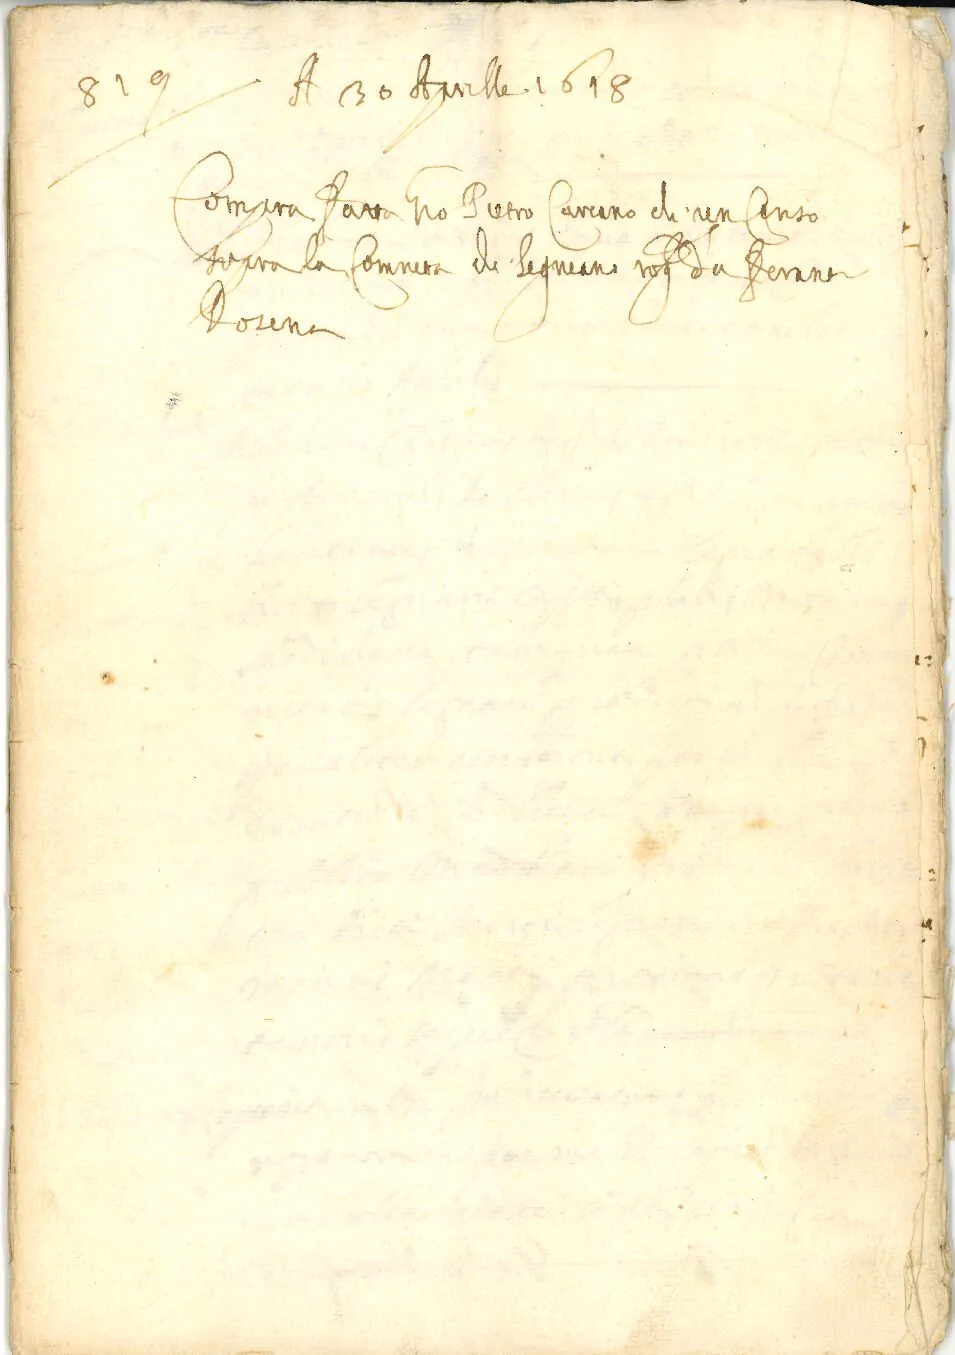 819 A 30 Aprille 1618
Compra fatta Pietro Carcano di un Censo
sopra la Comnità di Legnano rog. da
Rosena